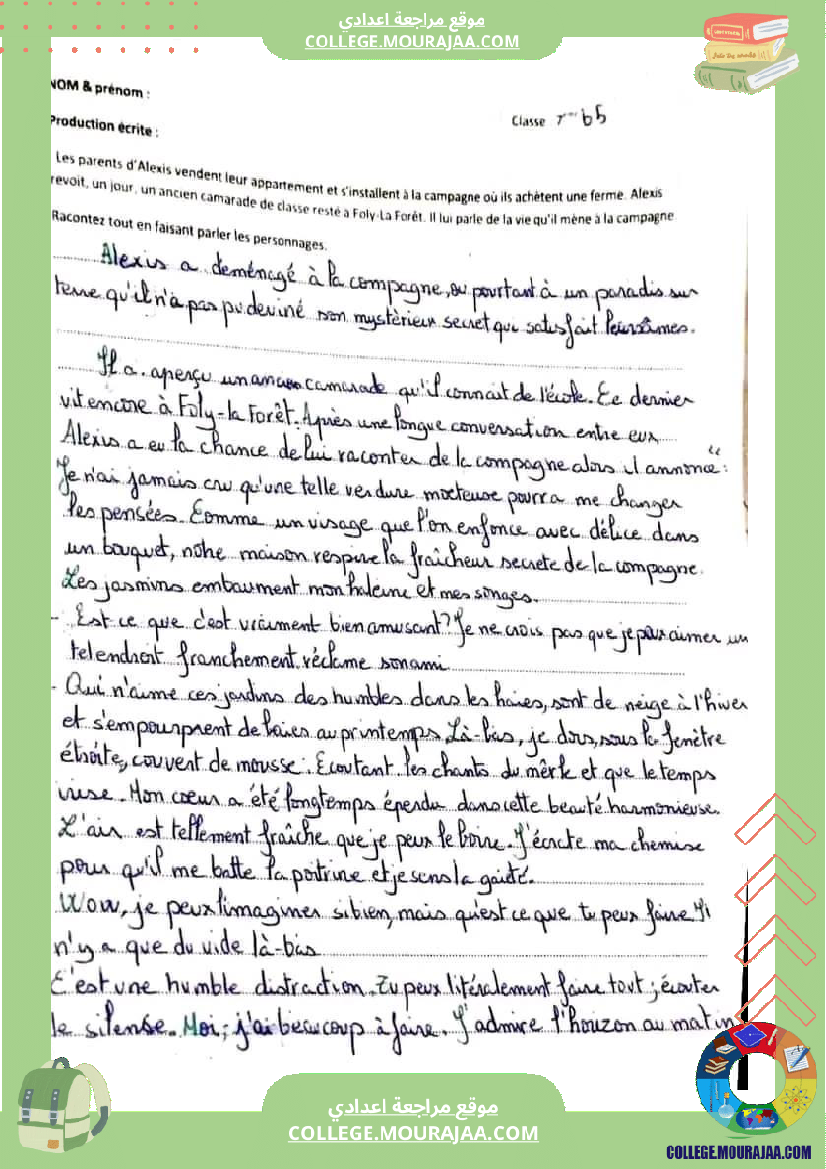 موقع مراجعة اعدادي
COLLEGE.MOURAJAA.COM
NOM & prénom :
Classe 7ème b5
Production écrite :
Les parents d'Alexis vendent leur appartement et s'installent à la campagne où ils achètent une ferme. Alexis
revoit, un jour, un ancien camarade de classe resté à Foly-La Forêt. Il lui parle de la vie qu'il mène à la campagne
Racontez tout en faisant parler les personnages.
Alexis a déménagé à la compagne, ou pourtant à un paradis sur
terre qu'il n'a pas pu deviné son mystèrieux secret qui satisfait leurs âmes.
Il a aperçu un ancien camarade qu'il connait de l'école. Ce dernier
vit encore à Foly-la Forêt. Après une longue conversation entre eux
Alexis a eu la chance de lui raconter de la compagne alors il annonce : "
Je n'ai jamais cru qu'une telle verdure mocteuse pourra me changer
les pensées. Comme un visage que l'on enfonce avec délice dans
un bouquet, notre maison respire la fraîcheur secrete de la compagne.
Les jasmins embaument mon haleine et mes singes.
- Est ce que c'est vraiment bien amusant? Je ne crois pas que je aimer un
tel endroit franchement. réclame son ami
- Qui n'aime ces jardins des humbles dans les haies, sont de neige à l'hiver
et s'empourprent de baies au printemps. Là-bas, je dors, sous la fenêtre
étroite, couvent de mousse. Ecoutant les chants du mêrle et que le temps
irise. Mon coeur a été longtemps éperdu dans cette beauté harmonieuse.
L'air est tellement fraîche que je peux le boire. J'écacte ma chemise
pour qu'il me batte la poitrine et je sens la gaité.
Wow, je peux l'imaginer si bien, mais qu'est ce que tu peux faire Il
n'y a que du vide là-bas
C'est une humble distraction. Tu peux litéralement faire tout ; écouter
le silense. Moi, j'ai beaucoup à faire. J'admire l'horizon au matin
موقع مراجعة اعدادي
COLLEGE.MOURAJAA.COM
COLLEGE.MOURAJAA.COM